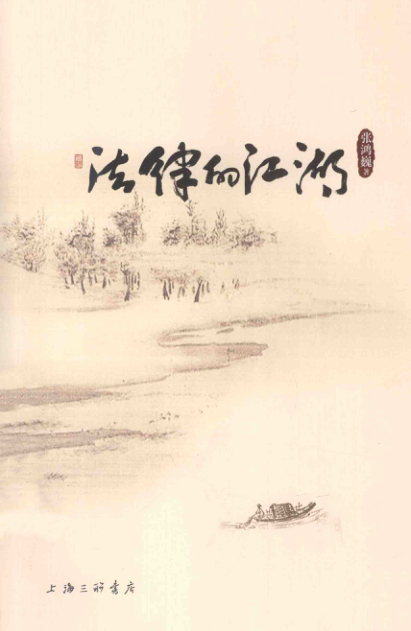 法律的江湖
张鸿巍 著
上海三联书店